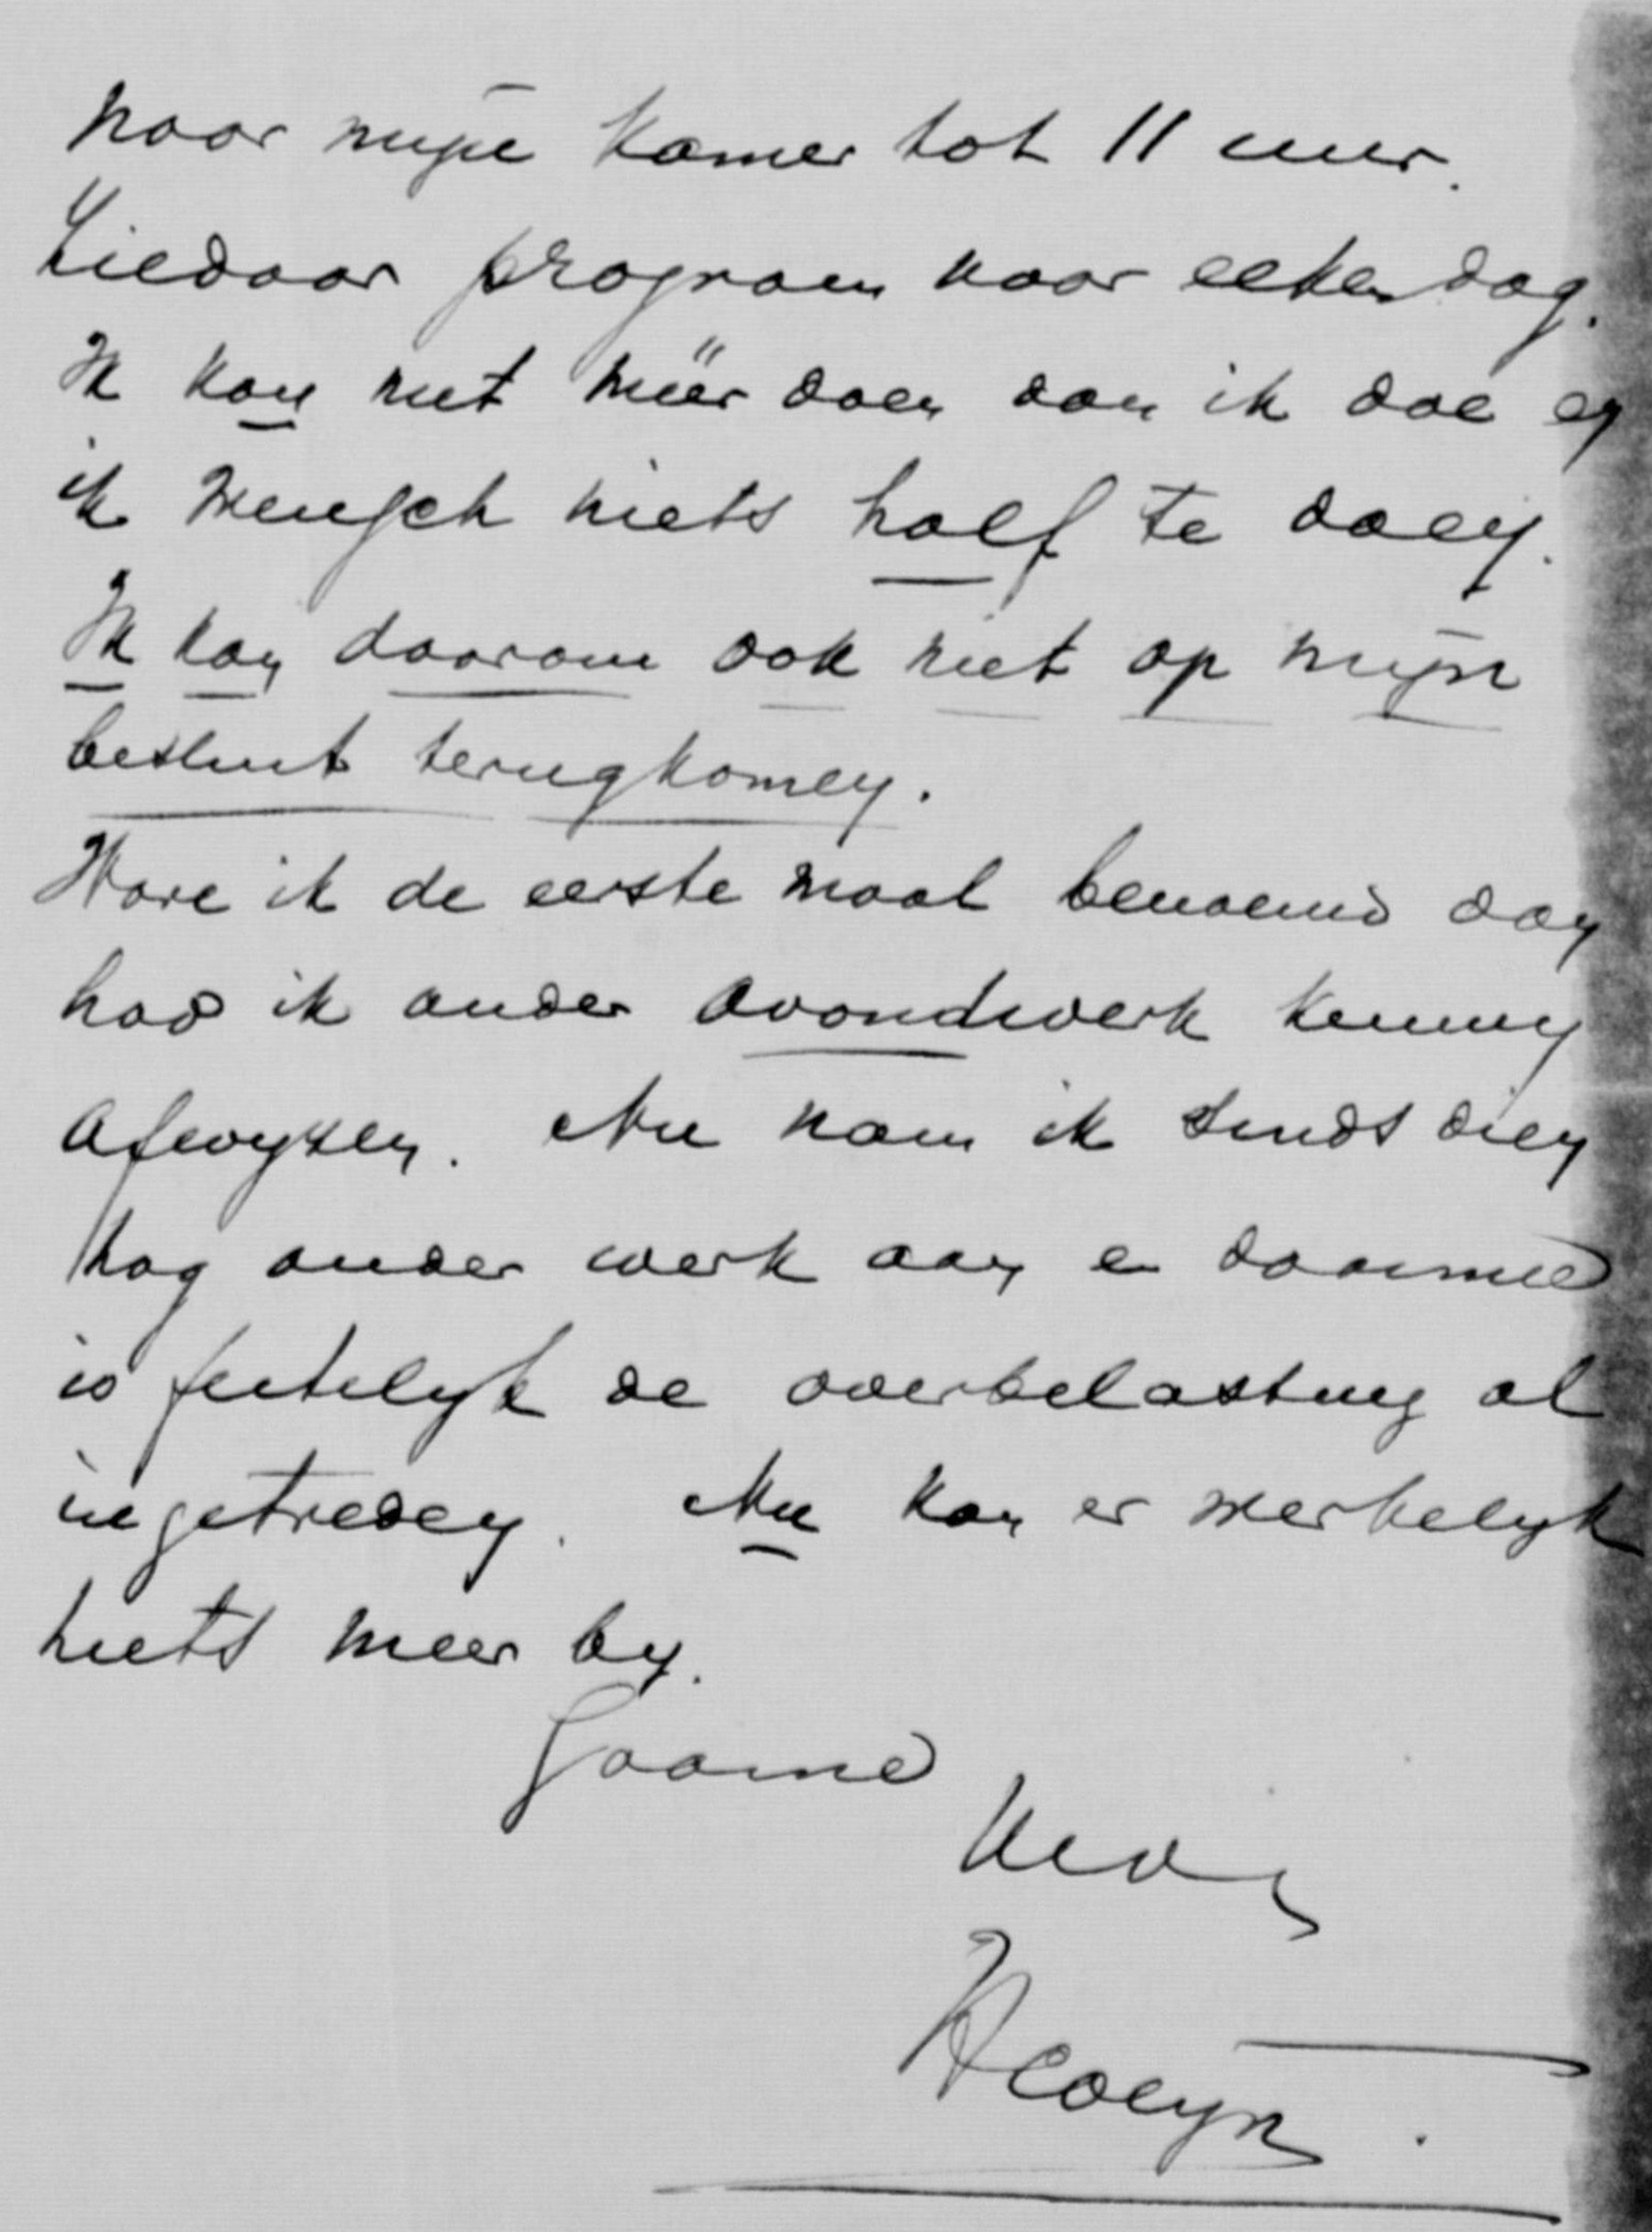 naar mijne kamer tot 11 uur.
Ziedaar program voor elken dag.
Ik kan niet méér doen dan ik doe en
ik wensch niets half te doen.
Ik kan daarom ook niet op mijn
besluit terugkomen.
Ware ik de eerste maal benoemd dan
had ik ander avondwerk kunnen
afwijzen. Nu nam ik sindsdien
nog ander werk aan en daarmed
is feitelijk de overbelasting al
ingetreden. Nu kan er werkelijk
niets meer bij.
Gaarne
HColijn.